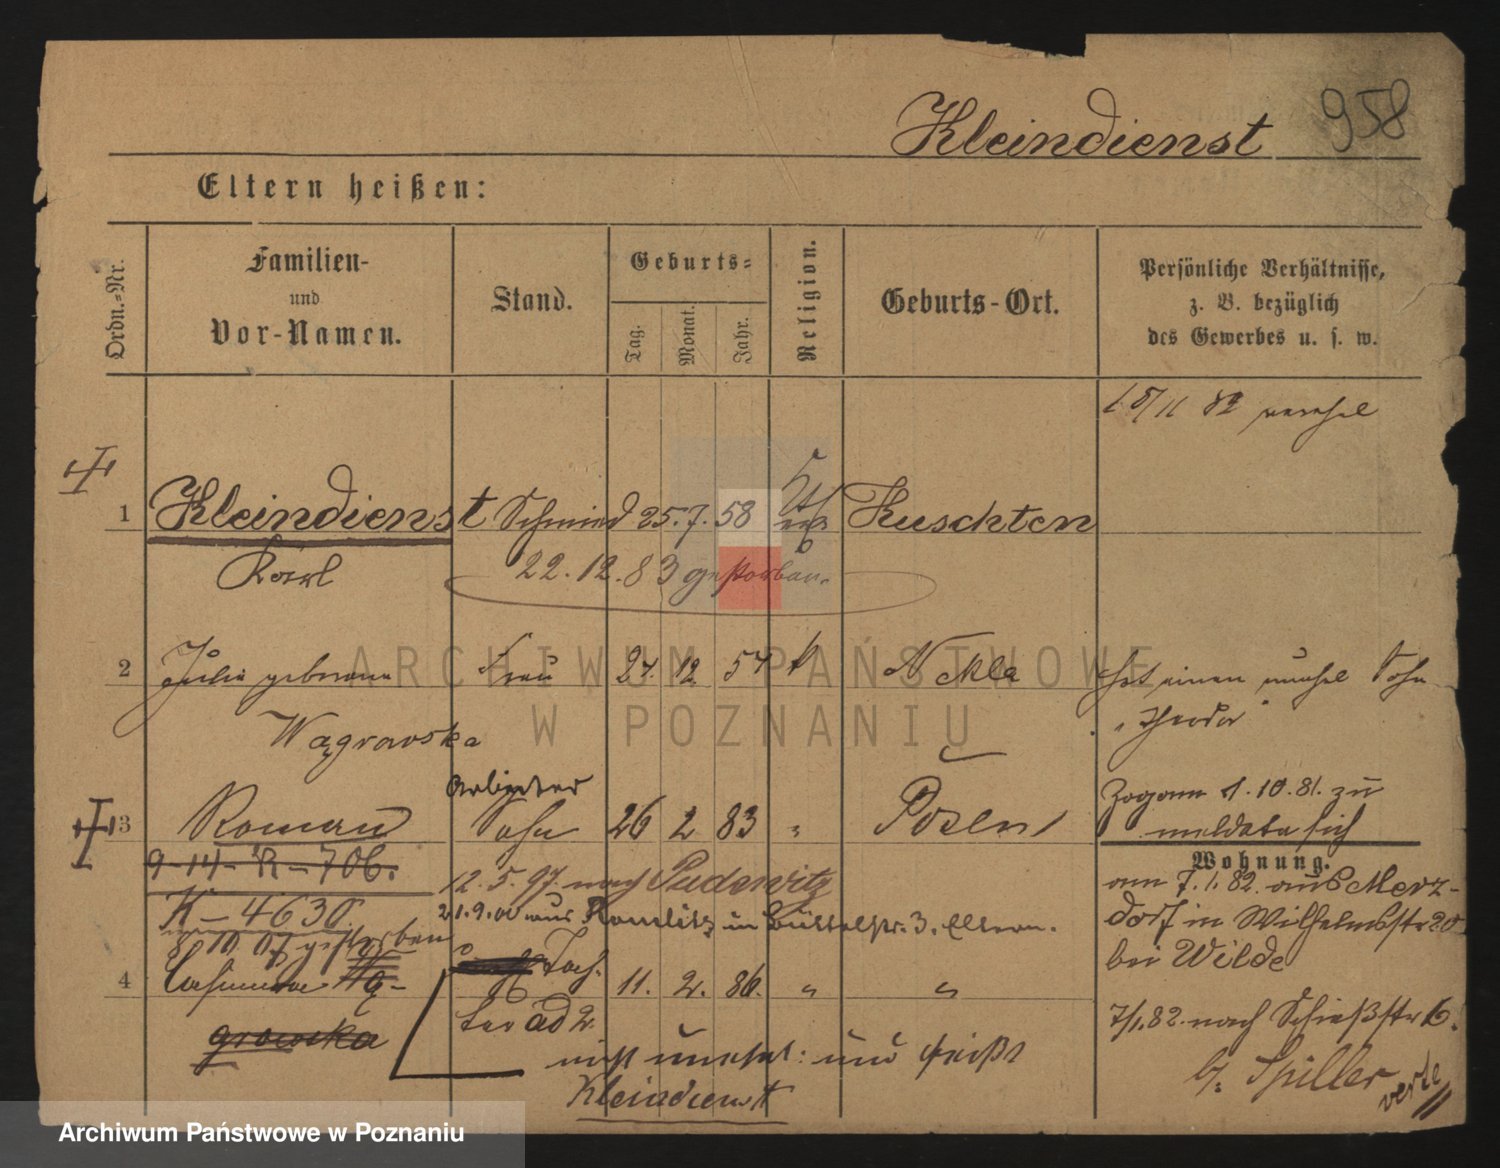 Kleindienst 958
Eltern heißen:
Ordn.-Nr.
Familien-
und
Vor-Namen.
Stand.
Geburts-
Tag.
Monat.
Jahr.
Religion.
Geburts-Ort.
Persönliche Verhältnisse,
z. B. bezüglich
des Gewerbes u. s. w.
15/11 82
1 Kleindienst Schmied 25. 7. 58 Kuschten
Karl 22. 12. 83 gestorben.
2 Julie geborene Frau 24. 12. 57 k Nekla hat einen unehel Sohn
Wągrowska „Theodor“
Arbeiter
3 Roman Sohn 26 2 83 " Posen
Zogen 1. 10. 81. zu
meldete sich
Wohnung.
9-14-R-706.
12. 5. 97. nach Pudewitz
K-4630.
21. 9. 00 aus in Büttelstr. 3. Eltern.
8 10 07 gestorben
am 7. 1. 82. aus Merz-
dorf in Wilhelmstr 20
bei Wilde
4 Casimira Wą- Toch- 11. 2. 86. " "
growska ter ad 2
7/1. 82. nach Schießstr 6.
b/. Spiller
verte
nicht unehel: und heißt
Kleindienst
ARCHIWUM PAŃSTWOWE
W POZNANIU
Archiwum Państwowe w Poznaniu